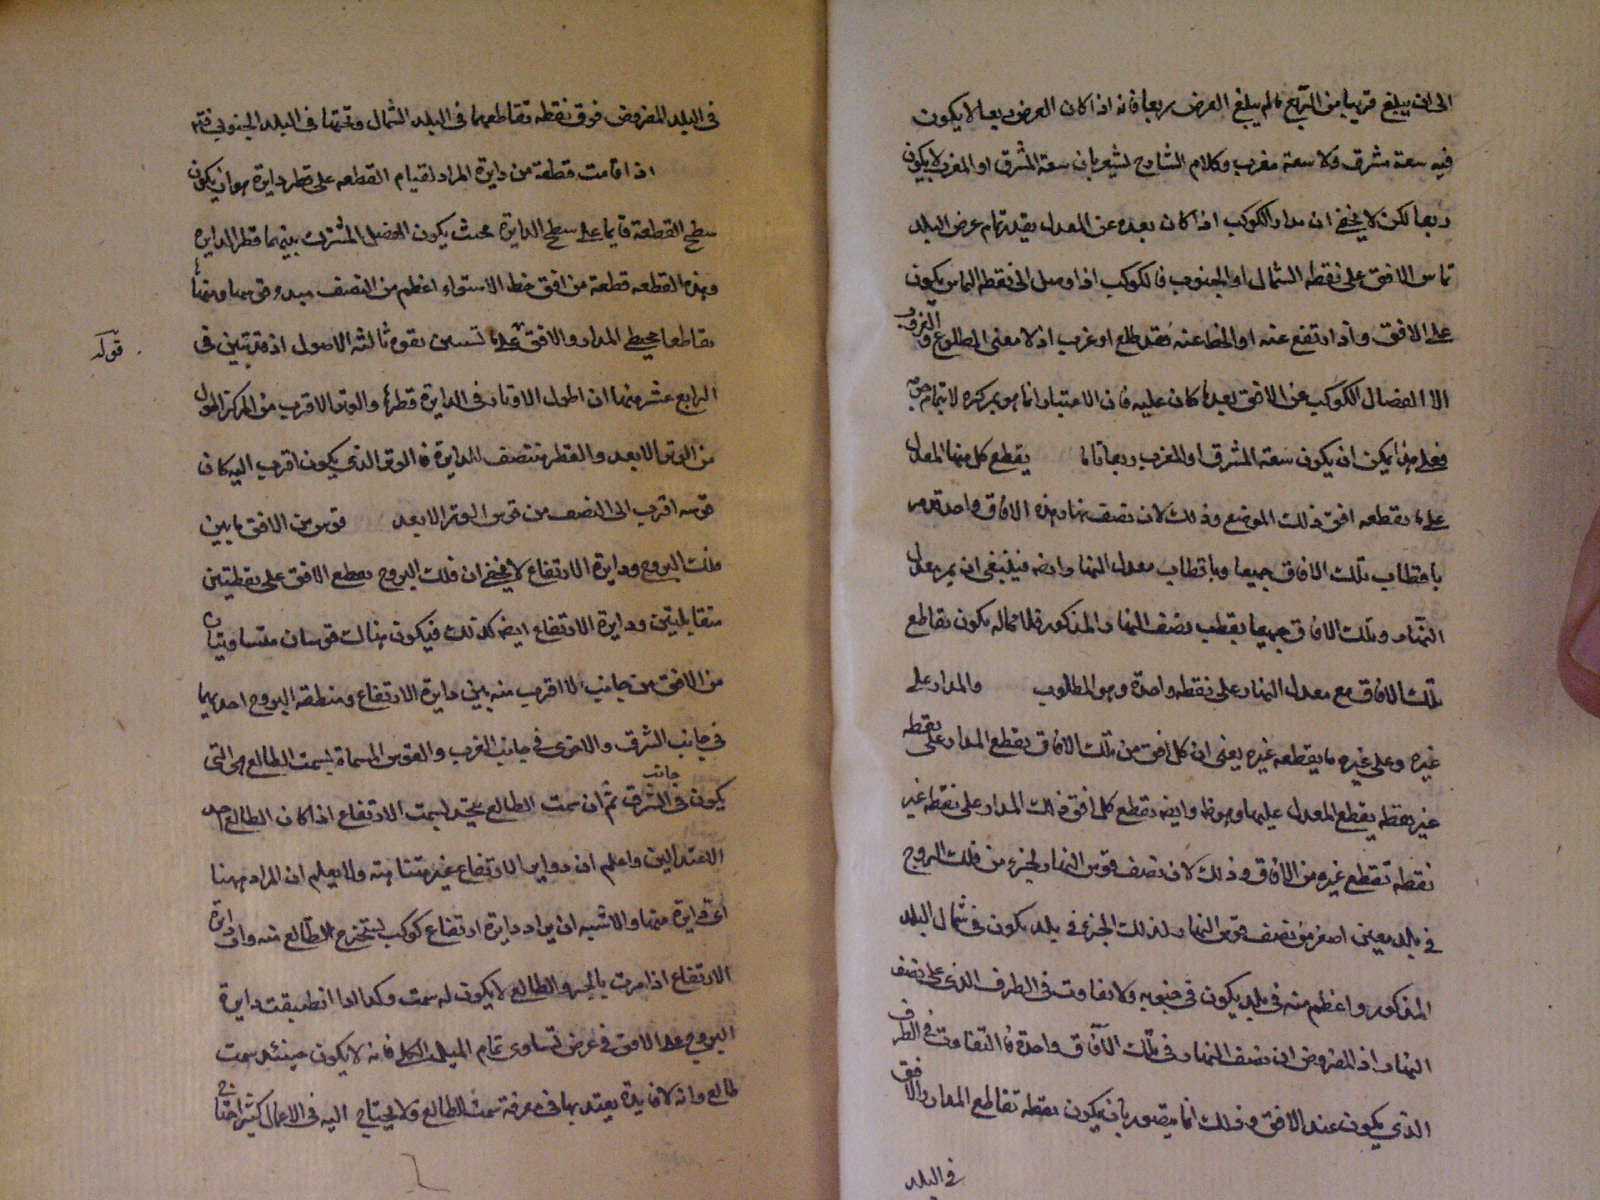 الى ان يبلغ قريبا من الربع ما لم يبلغ العرض ربعا فانه اذا كان العرض ربعا لا يكون
فيه سعة مشرق ولا سعة مغرب وكلام الشارح يشعر بان سعة المشرق او المغرب لا يكون
ربعا لكن لا يخفى ان مدار الكوكب اذا كان بعده عن المعدل بقدر تمام عرض البلد
تماس الافق على نقطه الشمال او الجنوب فالكوكب اذا وصل الى نقطه التماس يكون
على الافق واذا ارتفع عنه او انحط عنه فقد طلع او غرب اذ لا معنى للطلوع والغروب
الا انفصال الكوكب عن الافق بعد ما كان عليه فان الاعتبار انما هو بمركزه لا بتمام جرمه
فعلى هذا يمكن ان يكون سعة المشرق او المغرب ربعا تاما يقطع كل منها المعدل
على ما يقطعه افق ذلك الموضع وذلك لان نصف نهار هذه الافاق واحدة تمر
باقطاب تلك الافاق جميعا وباقطاب معدل النهار ايضا فينبغى ان يمر معدل
النهار وتلك الافاق جميعا بقطب نصف النهار المذكور فلا محاله يكون تقاطع
تلك الافاق مع معدل النهار على نقطه واحدة وهو المطلوب والمدار على
غيره وعلى غيره ما يقطعه غيره يعنى ان كل افق من تلك الافاق يقطع المدار على نقطه
غير نقطه يقطع المعدل عليها وهو ظ وايضا يقطع كل افق ذلك المدار على نقطه غير
نقطه تقطع غيره من الافاق وذلك لان نصف قوس النهار لجزء من فلك البروج
فى بلد معين اصغر من نصف قوس النهار لذلك الجزء فى بلد يكون فى شمال البلد
المذكور واعظم منه فى بلد يكون فى جنوبه ولا تفاوت فى الطرف الذى على نصف
النهار اذ المفروض ان نصف النهار فى تلك الآفاق واحدة فالتفاوت فى الطرف
الذى يكون عند الافق وذلك انما يتصور بان يكون نقطه تقاطع المدار والافق
فى البلد
فى البلد المفروض فوق نقطه تقاطعهما فى البلد الشمالى وتحتها فى البلد الجنوبى
اذا قامت قطعة من دايرة المراد لقيام القطعه على قطر دايرة هو ان يكون
سطح القطعة قايما على سطح الدايرة بحيث يكون الفصل المشترك بينهما قطر الدايرة
وهذه القطعه قطعة من افق خط الاستواء اعظم من النصف
تقاطعا محيطى المدار والافق على ثالثة الاصول اذ قد تبين فى
قوله
الرابع عشر منها ان اطول الاوتار فى الدايرة قطرها والوتر الاقرب من المركز اطول
من الوتر الابعد والقطر منتصف للدايرة فالوتر الذى يكون اقرب اليه كان
قوسه اقرب الى النصف من قوس الوتر الابعد قوس من الافق ما بين
فلك البروج ودايرة الارتفاع لا يخفى ان فلك البروج يقطع الافق على نقطتين
متقابلتين ودايرة الارتفاع ايضا كذلك فيكون هناك قوسان متساويتان
من الافق من جانب الاقرب منه بين دايرة الارتفاع ومنطقة البروج احديهما
فى جانب الشرق والاخرى فى جانب الغرب والقوس المسماة بسمت الطالع هى التى
يكون فى جانب الشرق ثم ان سمت الطالع يتحد بسمت الارتفاع اذا كان الطالع احد
الاعتدالين واعلم ان دواير الارتفاع غير متناهية ولا يعلم ان المراد ههنا
اى دايرة منها والاشبه ان يراد دايرة ارتفاع كوكب يستخرج الطالع منه وان دايرة
الارتفاع اذا مرت بالجزء الطالع لا يكون له سمت وكذا اذا انطبقت دايرة
البروج على الافق فى عرض تساوى تمام الميل الكلى فانه لا يكون حينئذ سمت
طالع وانه لا فايدة يعتد بها فى معرفة سمت الطالع ولا يحتاج اليه فى الاعمال كثير احتياج